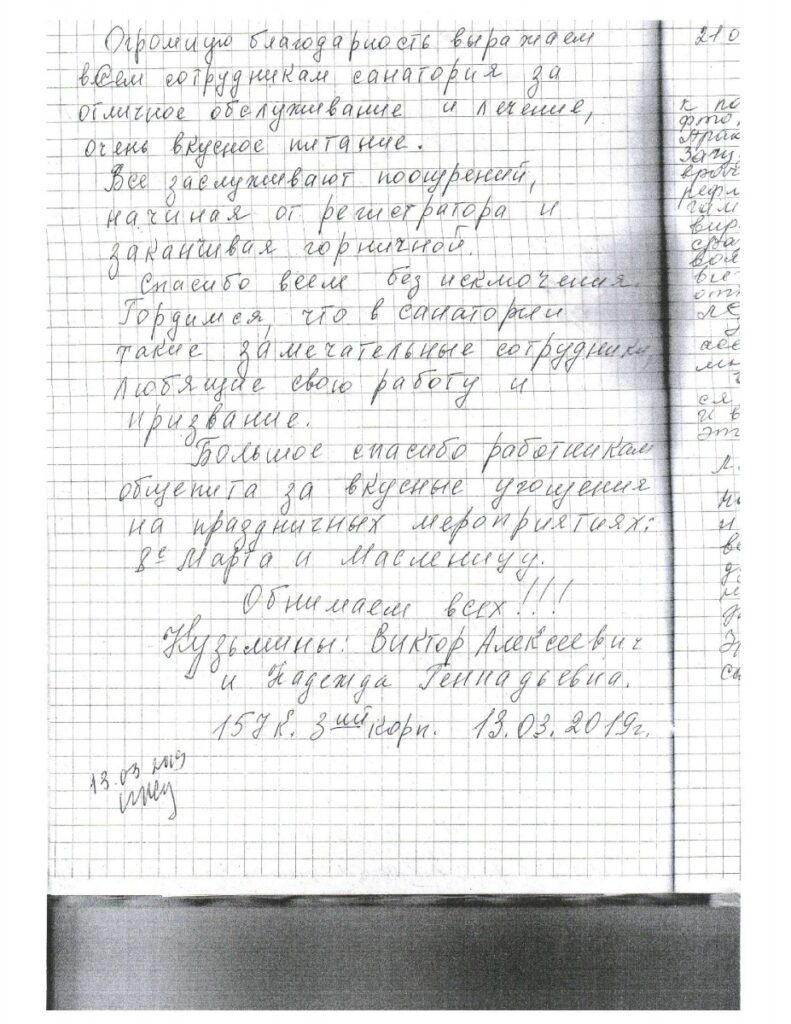 Огромную благодарность выражаем
всем сотрудникам санатория за
отличное обслуживание и лечение,
очень вкусное питание.
Все заслуживают поощрений,
начиная от регистратора и
заканчивая горничной.
Спасибо всем без исключения.
Гордимся, что в санатории
такие замечательные сотрудники,
любящие свою работу и
призвание.
Большое спасибо работникам
общепита за вкусные угощения
на праздничных мероприятиях:
8е Марта и Масленицу.
Обнимаем всех!!!
Кузьмины: Виктор Алексеевич
и Надежда Геннадьевна.
157к. 3ий корп. 13.03.2019г.
13.03 2019
210
к по
фто
Зачу
рефл
гам
вир
вое
отт
ся
и в
эт
Л.